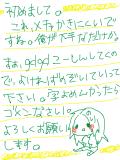 初めまして。
これ、メチャかきにくいで
すね。俺が下手なだけか。
まぁ、gdgdコーしんしてくの
で、よければがめていって
下さい。字よめんかったら
ゴメンなさい。
よろしくお願い
します。